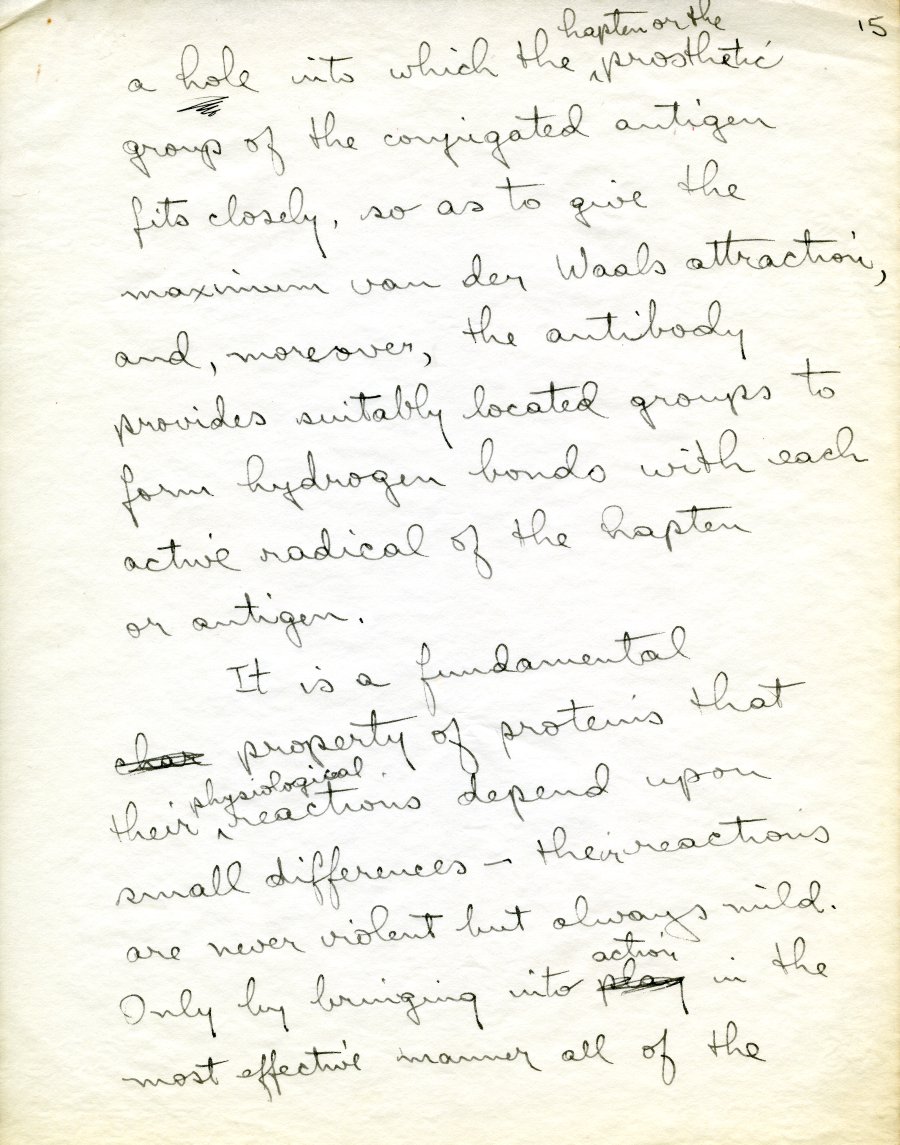 15
hapten or the
a hole into which the ‸prosthetic
group of the conjugated antigen
fits closely, so as to give the
maximum van der Waals attraction,
and, moreover, the antibody
provides suitably located groups to
form hydrogen bonds with each
active radical of the hapten
or antigen.
It is a fundamental
char property of proteins that
physiological
their ‸reactions depend upon
small differences — their reactions
are never violent but always mild.
action
Only by bringing into play in the
most effective manner all of the